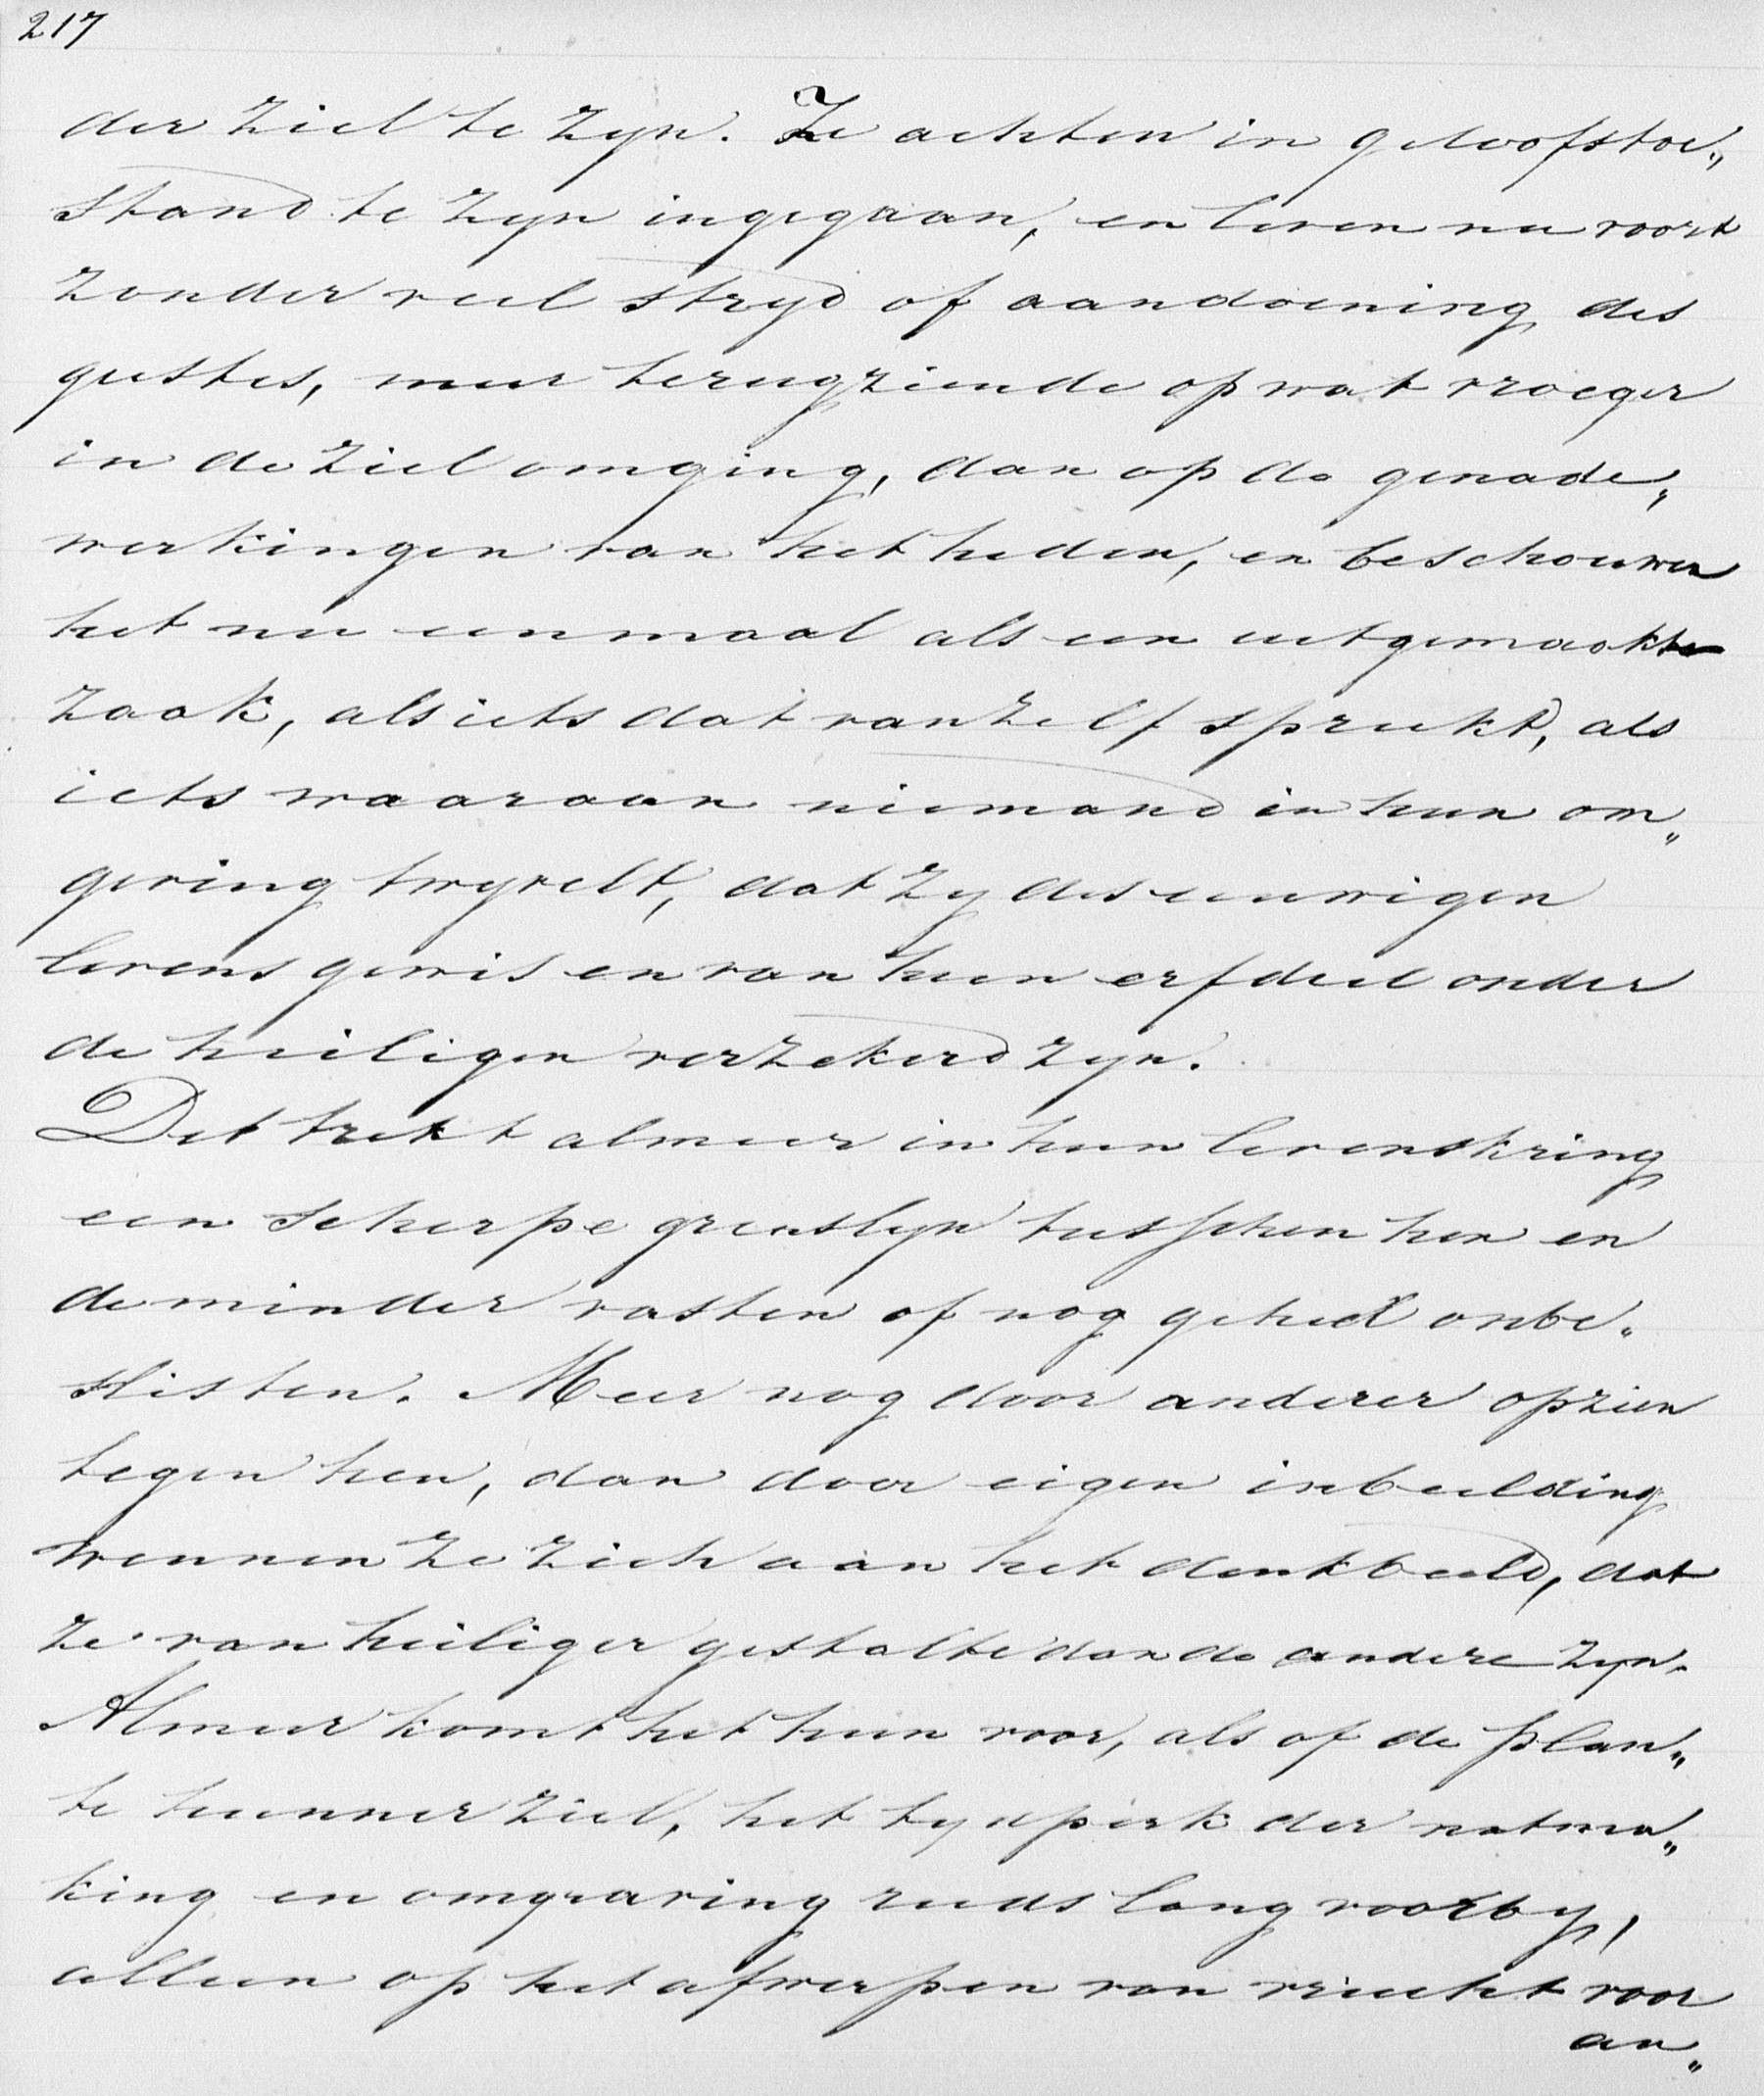 217
der ziel te zyn. Ze achten in geloofstoe„
stand te zyn ingegaan, en leven nu voort
zonder veel stryd of aandoening des
geestes, meer terugziende op wat vroeger
in de ziel omging, dan op de genade„
werkingen van het heden, en beschouwen
het nu eenmaal als een uitgemaakte
zaak, als iets dat van zelf spreekt, als
iets waaraan niemand in hun om„
geving twyfelt, dat zy des eeuwigen
levens gewis en van hun erfdeel onder
de heiligen verzekerd zyn.
Dit trekt almeer in hun levenskring
een scherpe grenslyn tusschen hen en
de minder vasten of nog geheel onbe„
slisten. Meer nog door anderer opzien
tegen hen, dan door eigen inbeelding
wennen ze zich aan het denkbeeld, dat
ze van heiliger gestalte dan de andere zyn.
Almeer komt het hun voor, als of de plan„
te hunner ziel, het tydperk der natma„
king en omgraving reeds lang voorby,
alleen op het afwerpen van vrucht voor
an„